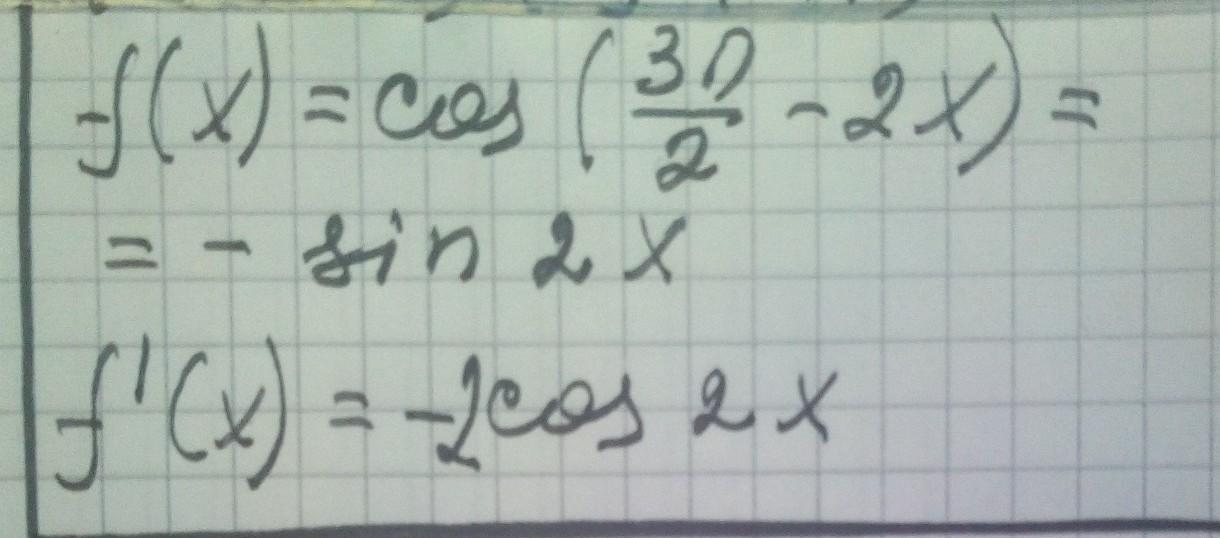 f(x) = cos (3π/2 - 2x) =
= - sin 2x
f'(x) = -2cos 2x